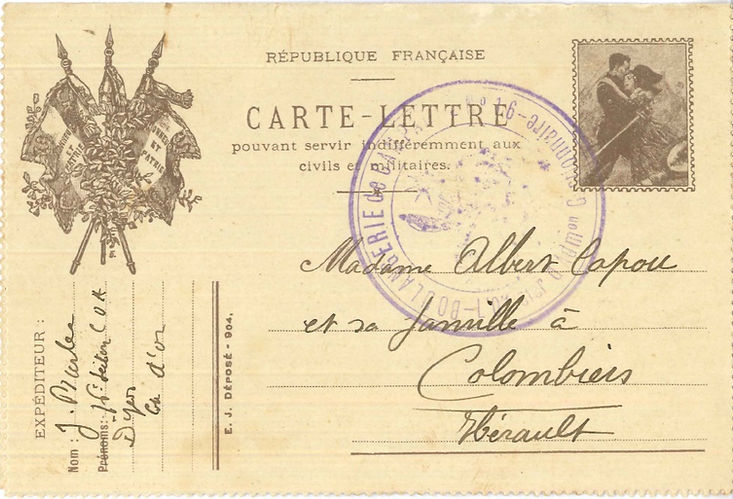 RÉPUBLIQUE FRANÇAISE
CARTE-LETTRE
pouvant servir indifféremment aux
civils et militaires.
HONNEUR
ET
PATRIE
BOULANGERIE
Madame Albert Capou
et sa famille à
Colombiers
Hérault
EXPÉDITEUR :
Nom : J. Barba
Prénoms: 16e Section C O A
Dijon
Côte d'or
E. J. DÉPOSÉ - 904.